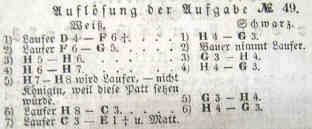 Auflösung der Aufgabe № 49.
Weiß. Schwarz.
1) Laufer D 4 — F 6 ‡. 1) H 4 — G 3.
2) Laufer F 6 — G 5. 2) Bauer nimmt Laufer.
3) H 5 — H 6. 3) G 3 — H 4.
4) H 6 — H 7. 4) H 4 — G 3.
5) H 7 — H 8 wird Laufer, — nicht
Königin, weil diese Patt setzen
würde. 5) G 3 — H 4.
6) Laufer H 8 — C 3. 6) H 4 — G 3.
7) Laufer C 3 — E 1 ‡ u. Matt.